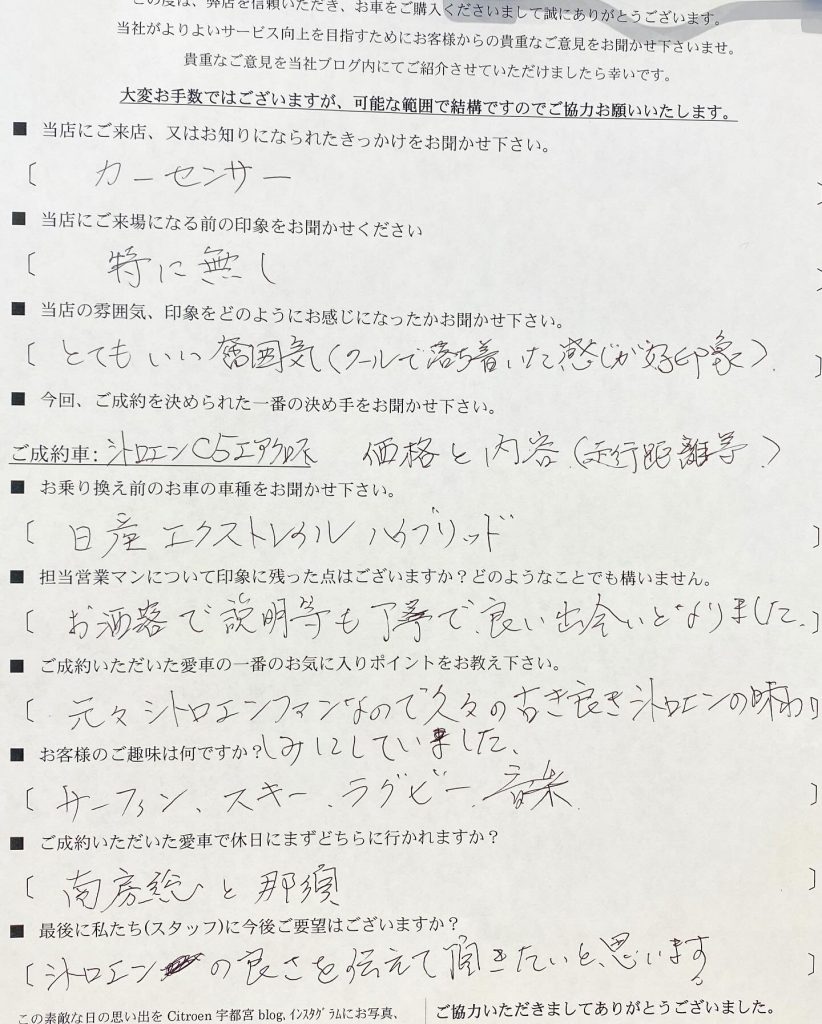 この度は、弊店を信頼いただき、お車をご購入くださいまして誠にありがとうございます。
当社がよりよいサービス向上を目指すためにお客様からの貴重なご意見をお聞かせ下さいませ。
貴重なご意見を当社ブログ内にてご紹介させていただけましたら幸いです。
大変お手数ではございますが、可能な範囲で結構ですのでご協力お願いいたします。
■ 当店にご来店、又はお知りになられたきっかけをお聞かせ下さい。
〔 カーセンサー 〕
■ 当店にご来場になる前の印象をお聞かせください
〔 特に無し 〕
■ 当店の雰囲気、印象をどのようにお感じになったかお聞かせ下さい。
〔 とてもいい雰囲気(クールで落ち着いた感じが好印象). 〕
■ 今回、ご成約を決められた一番の決め手をお聞かせ下さい。
ご成約車: シトロエンC5エアクロス 価格と内容(走行距離等)
■ お乗り換え前のお車の車種をお聞かせ下さい。
〔 日産 エクストレイル ハイブリッド 〕
■ 担当営業マンについて印象に残った点はございますか？どのようなことでも構いません。
〔 お洒落で説明等も丁寧で、良い出会いとなりました。 〕
■ ご成約いただいた愛車の一番のお気に入りポイントをお教え下さい。
〔 元々シトロエンファンなので久々の古き良きシトロエンの味わり 〕
■ お客様のご趣味は何ですか？ しみにしていました。
〔 サーフィン、スキー、ラグビー、音楽 〕
■ ご成約いただいた愛車で休日にまずどちらに行かれますか？
〔 南房総と那須 〕
■ 最後に私たち(スタッフ)に今後ご要望はございますか？
〔 シトロエンの良さを伝えて頂きたいと思います。 〕
この素敵な日の思い出を Citroen 宇都宮 blog, ｲﾝｽﾀｸﾞﾗﾑにお写真、
ご協力いただきましてありがとうございました。